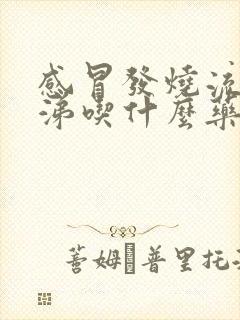 感冒發燒流
涕喫什麼藥
蓍姆 普里托